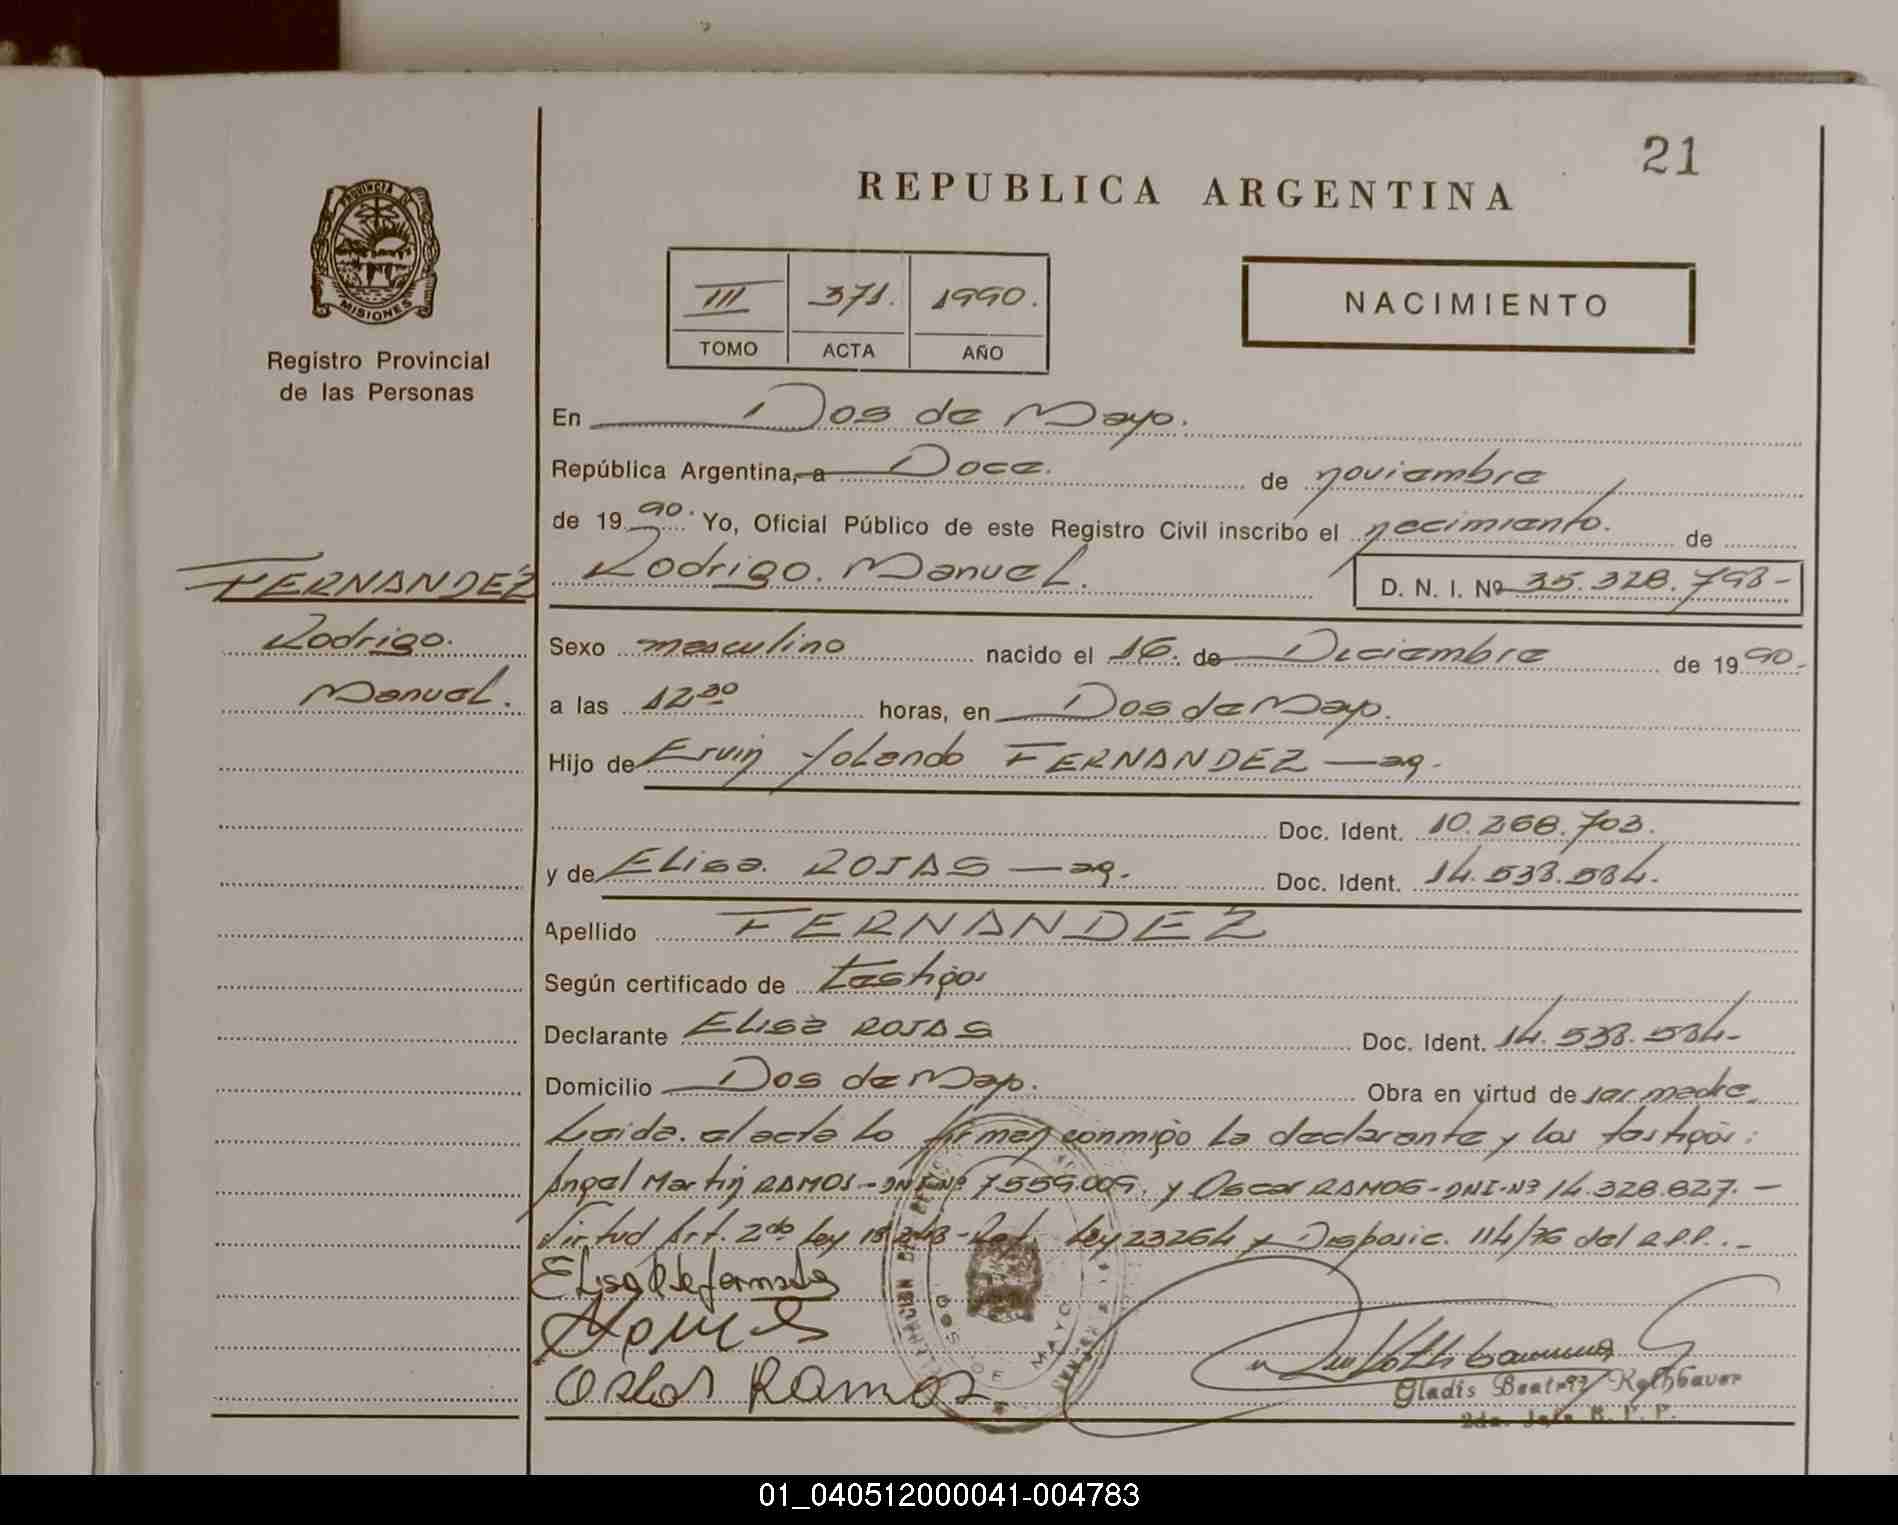 21
REPUBLICA ARGENTINA
PROVINCIA DE
MISIONES
Registro Provincial
de las Personas
III 371. 1990.
TOMO ACTA AÑO
NACIMIENTO
En Dos de Mayo.
República Argentina, a Doce. de noviembre
de 1990. Yo, Oficial Público de este Registro Civil inscribo el nacimiento. de
Rodrigo. Manuel. D. N. I. Nº 35.328.798-
FERNANDEZ
Rodrigo.
Manuel.
Sexo masculino nacido el 16. de Diciembre de 1990.
a las 12³⁰ horas, en Dos de Mayo.
Hijo de Ervin Yolando FERNANDEZ — ag.
Doc. Ident. 10.268.703.
y de Elisa. ROJAS — ag. Doc. Ident. 14.538.584.
Apellido FERNANDEZ
Según certificado de testigos
Declarante Elisa ROJAS Doc. Ident. 14.538.584-
Domicilio Dos de Mayo. Obra en virtud de ser madre.
Leida. el acta lo firman conmigo la declarante y los testigos:
Angel Martin RAMOS - DNI-Nº 7.559.009. y Oscar RAMOS - DNI-Nº 14.328.827. -
Virtud Art. 2do Ley 18248 - Ley 23264 y Disposic. 114/76 del R.P.P.. -
Elisa R de fernandes
Ramos
DOS DE MAYO
Gladis Beatriz Rothbauer
2da. Jefe R. P. P.
01_040512000041-004783